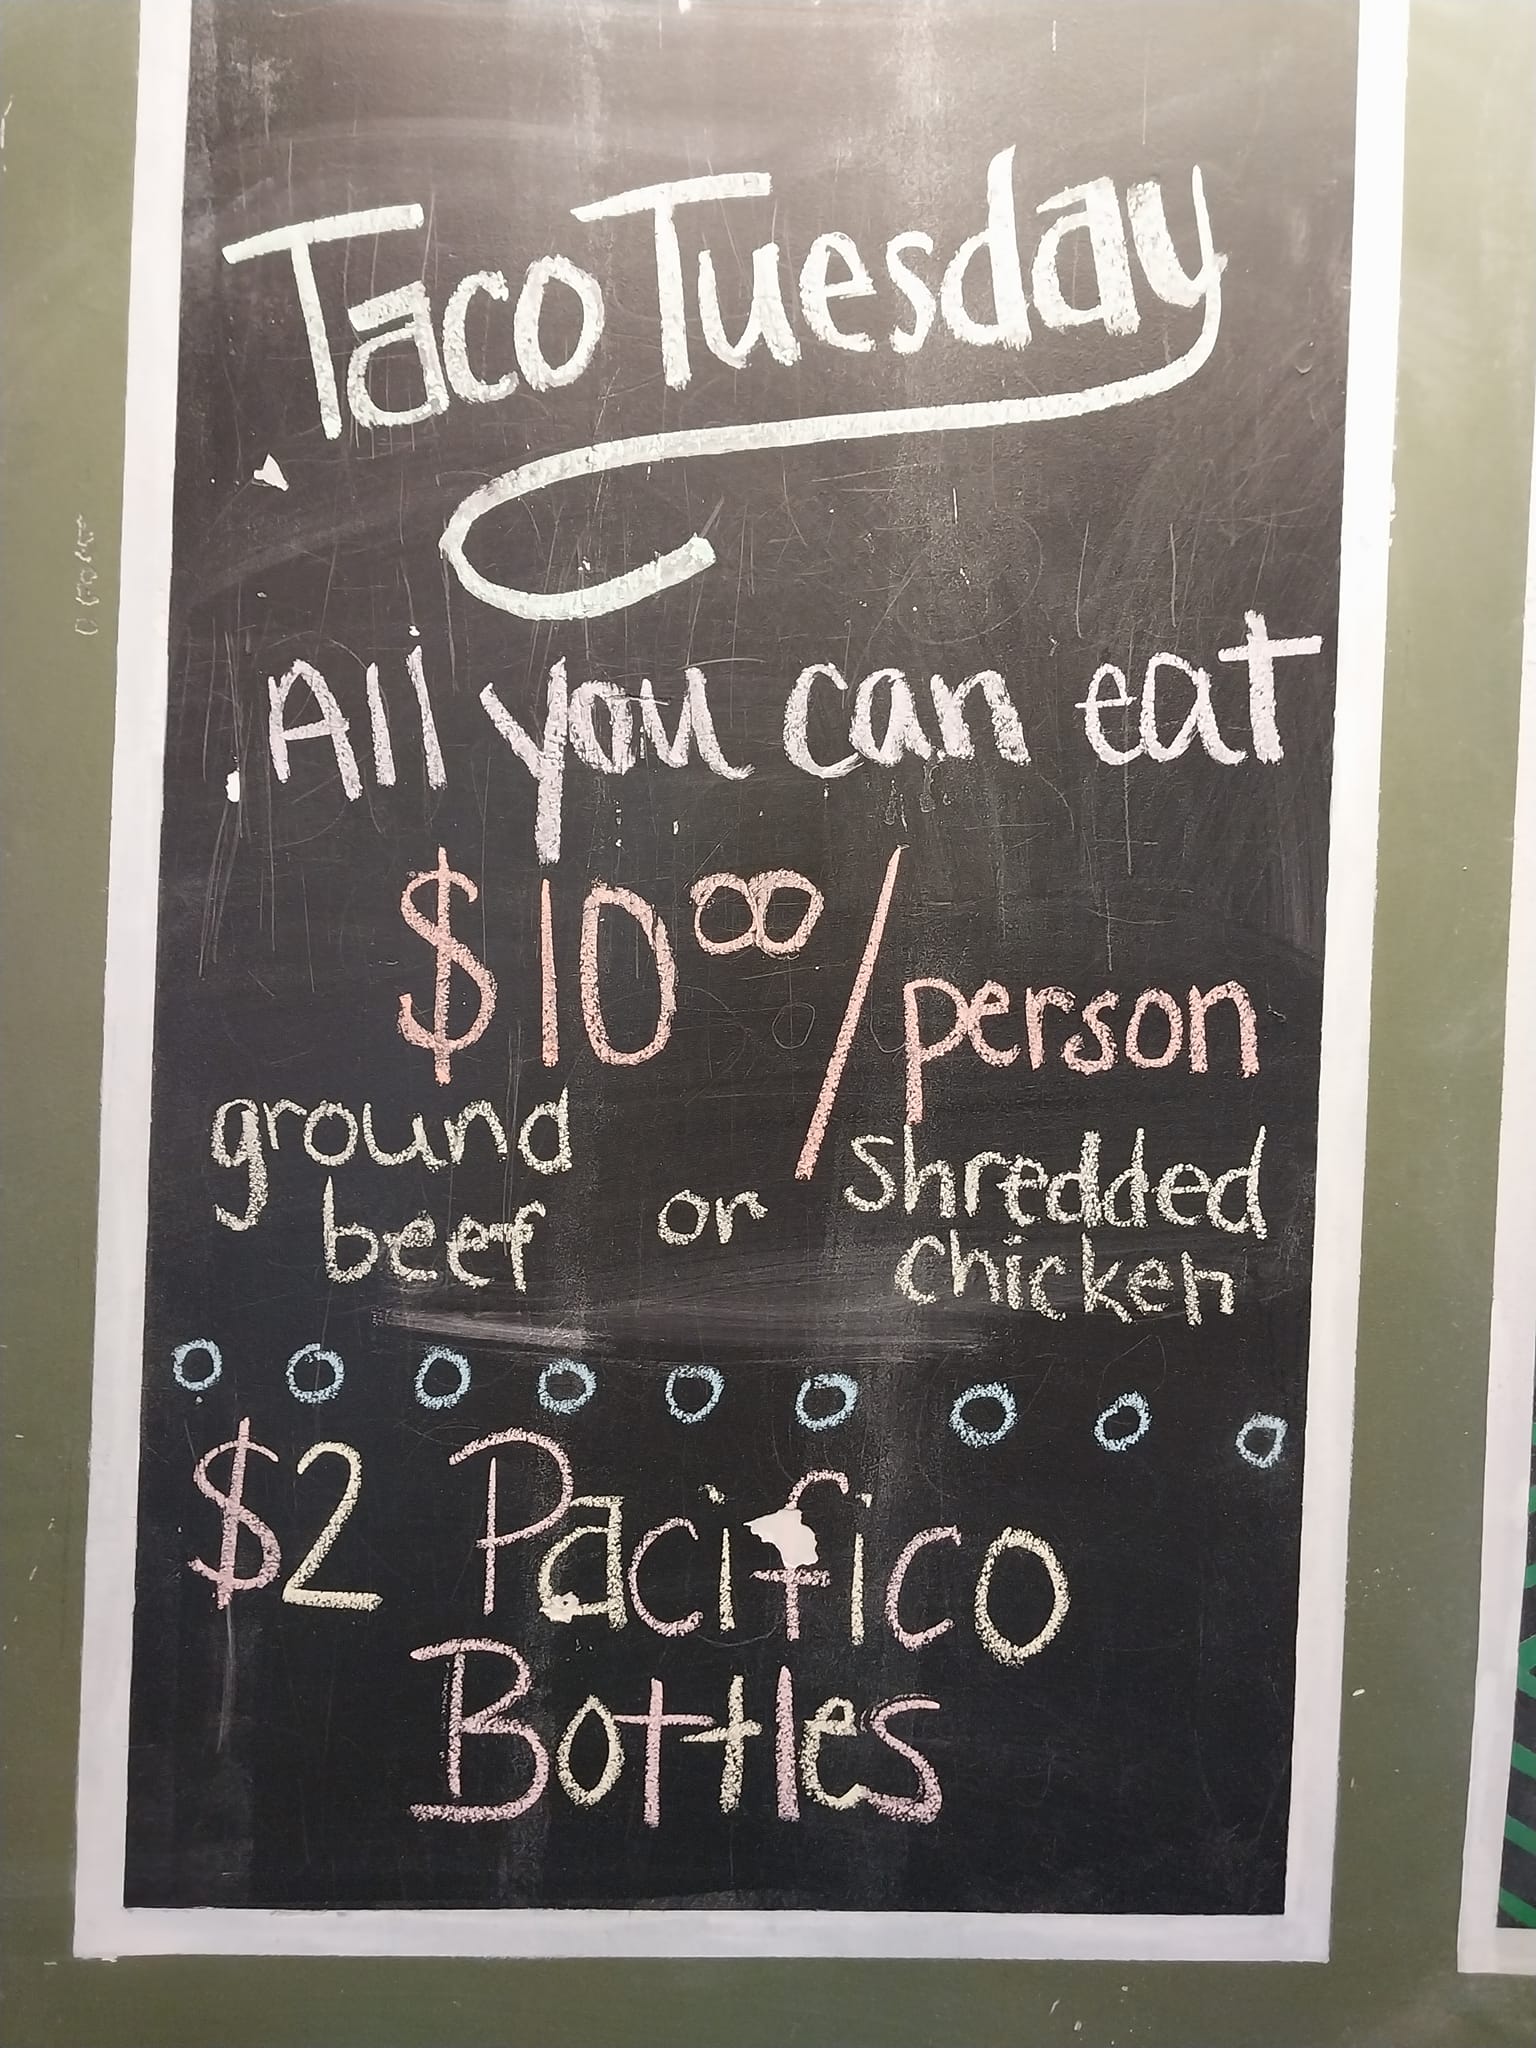 Taco Tuesday
All you can eat
$10⁰⁰/person
ground beef or shredded chicken
$2 Pacifico
Bottles